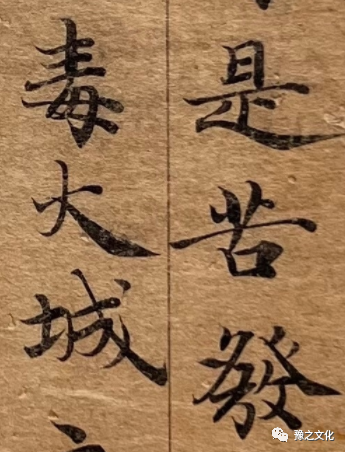 是苦發
毒火城
豫之文化